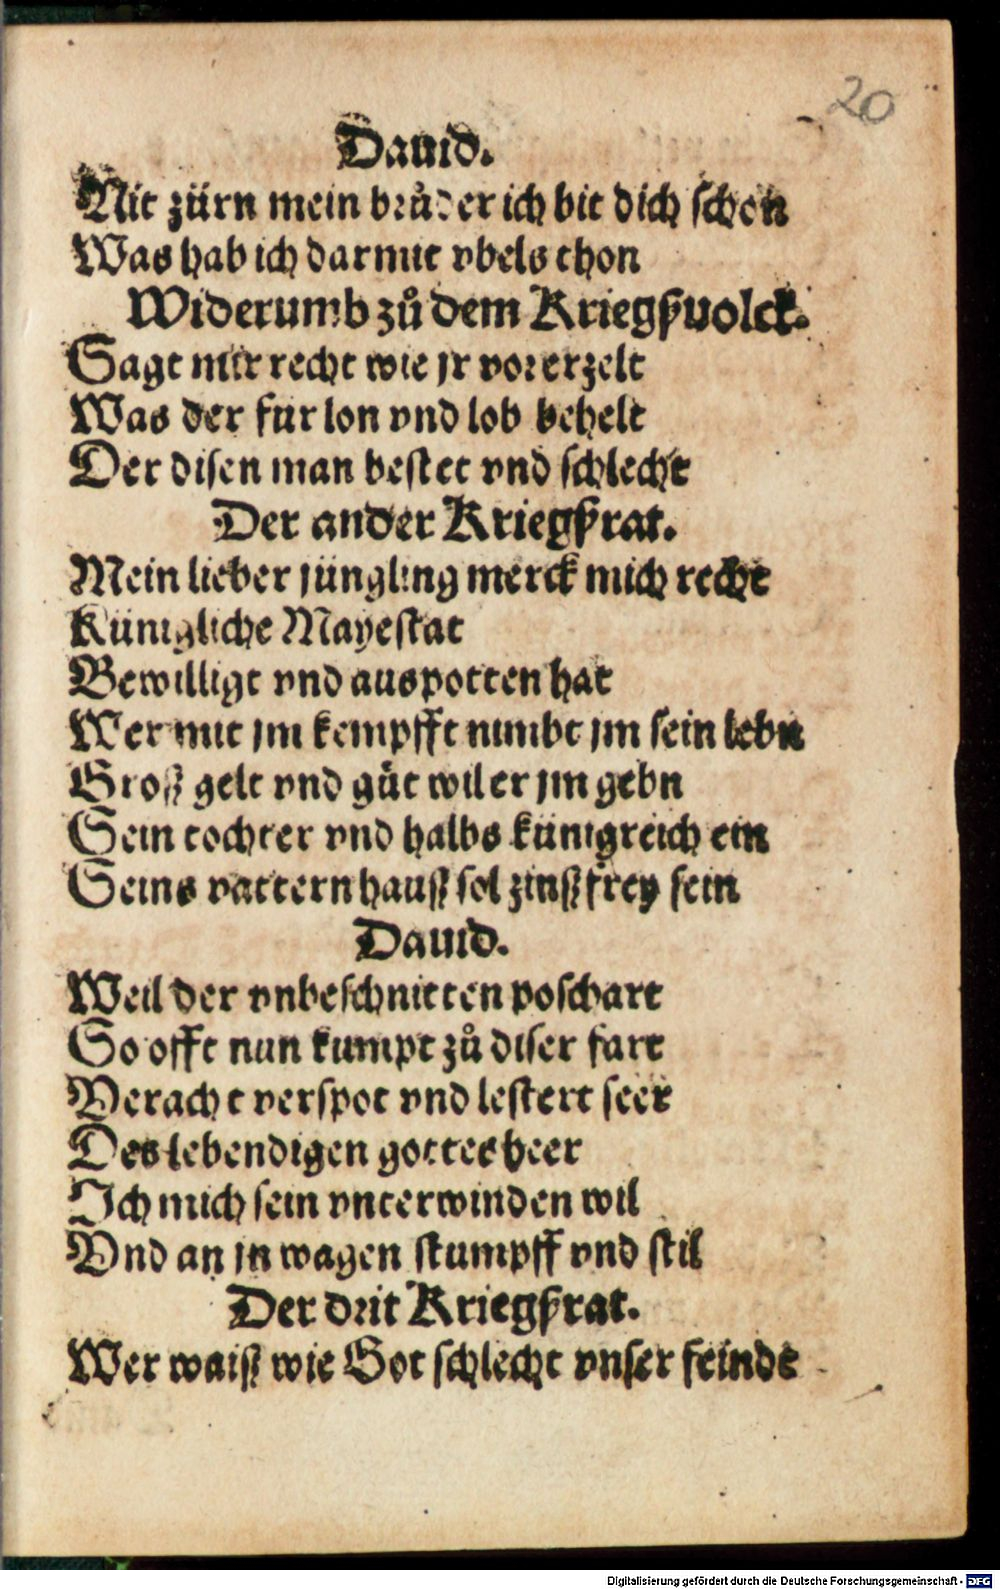 20
Dauid.
Nit zürn mein brůder ich bit dich schon
Was hab ich darmit vbels thon
Widerumb zů dem Kriegßuolck.
Sagt mir recht wie jr vor erzelt
Was der für lon vnd lob behelt
Der disen man bestet vnd schlecht
Der ander Kriegßrat.
Mein lieber jüngling merck mich recht
Künigliche Mayestat
Bewilligt vnd auspotten hat
Wer mit jm kempfft nimbt jm sein lebn
Groß gelt vnd gůt wil er jm gebn
Sein tochter vnd halbs künigreich ein
Seins vattern hauß sol zinß frey sein
Dauid.
Weil der vnbeschnitten poschart
So offt nun kumpt zů diser fart
Veracht verspot vnd lestert seer
Des lebendigen gottes heer
Ich mich sein vnterwinden wil
Vnd an jn wagen stumpff vnd stil
Der drit Kriegßrat.
Wer waiß wie Got schlecht vnser feinde
Digitalisierung gefördert durch die Deutsche Forschungsgemeinschaft - DFG